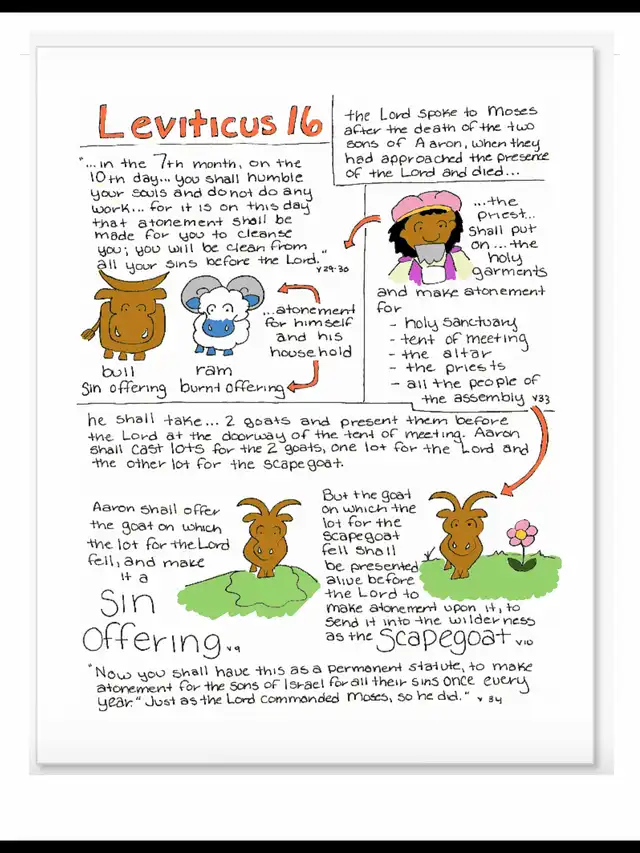 Leviticus 16
the Lord spoke to Moses
after the death of the two
sons of Aaron, when they
had approached the presence
of the Lord and died...
"...in the 7th month, on the
10th day... you shall humble
your souls and do not do any
work... for it is on this day
that atonement shall be
made for you to cleanse
you; you will be clean from
all your sins before the Lord."
v29-30
...the
priest...
shall put
on ... the
holy
garments
and make atonement
for
- holy sanctuary
- tent of meeting
- the altar
- the priests
- all the people of
the assembly v33
...atonement
for himself
and his
household
bull
Sin offering
ram
burnt offering
he shall take... 2 goats and present them before
the Lord at the doorway of the tent of meeting. Aaron
shall cast lots for the 2 goats, one lot for the Lord and
the other lot for the scapegoat.
Aaron shall offer
the goat on which
the lot for the Lord
fell, and make
it a
Sin
Offering v9
But the goat
on which the
lot for the
scapegoat
fell shall
be presented
alive before
the Lord to
make atonement upon it, to
send it into the wilderness
as the Scapegoat v10
"Now you shall have this as a permanent statute, to make
atonement for the sons of Israel for all their sins once every
year." Just as the Lord commanded Moses, so he did." v 34